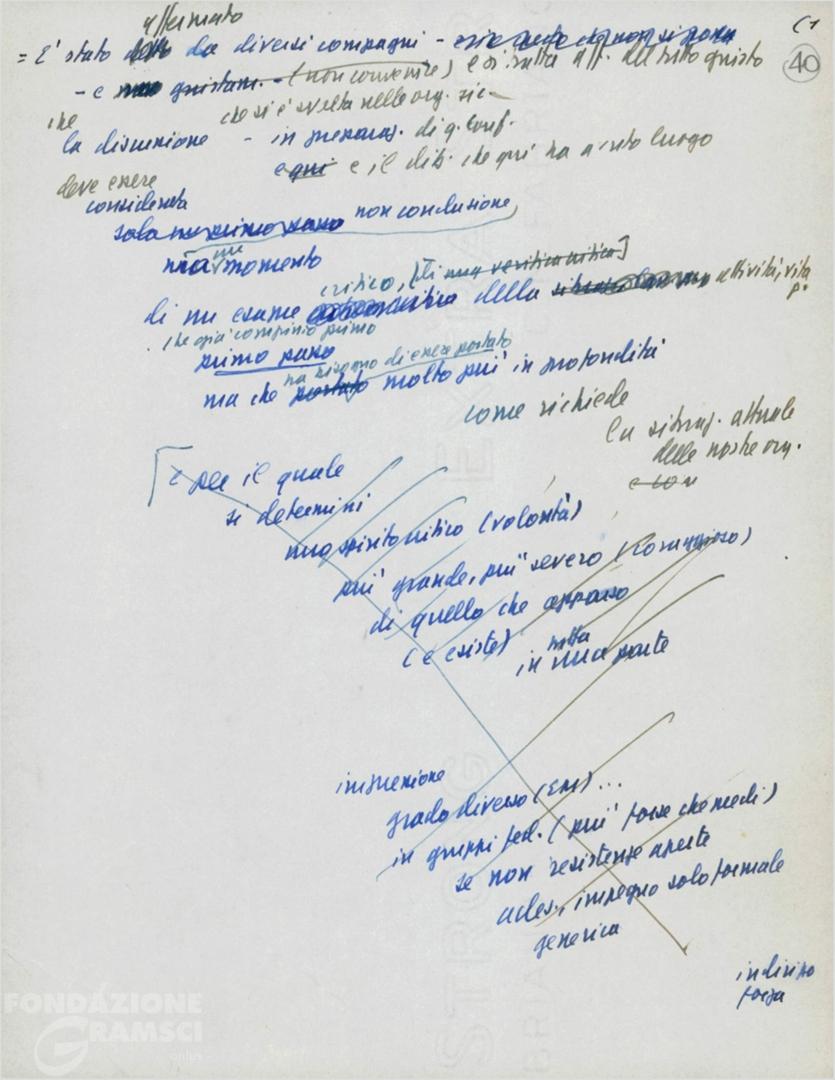 affermato
(1
= E' stato da diversi compagni -
40
- e giustam. - (non conviene) e si tratta di aff. del tutto giusto
che
che si è svolta nelle org. sic.
la discussione - in preparaz. di q. conf.
e qui e il dib. che qui ha avuto luogo
deve essere
considerata
solo un primo passo non conclusione
ma un momento
critico, [di una verifica critica]
di un esame critico della attività, vita p.
che già compiuto primo
primo passo
ha bisogno di essere portato
ma che portato molto più in profondità
come richiede
la situaz. attuale
delle nostre org.
e con
e per il quale
si determini
uno spirito critico (volontà)
più grande, più severo (coraggioso)
di quello che apparso
(e esiste)
in una parte
impressione
grado diverso (EM) ...
in gruppi fed. (più forse che medi)
se non resistenze aperte
ades., impegno solo formale
generica
indirizzo
forza
FONDAZIONE
GRAMSCI
onlus
EXTRA
STRONG